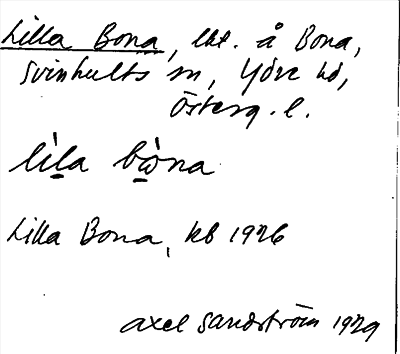 Lilla Bona, lht. å Bona,
Svinhults sn, Ydre hd,
Österg. l.
lìla bòna
Lilla Bona, kb 1926
Axel Sandström 1929